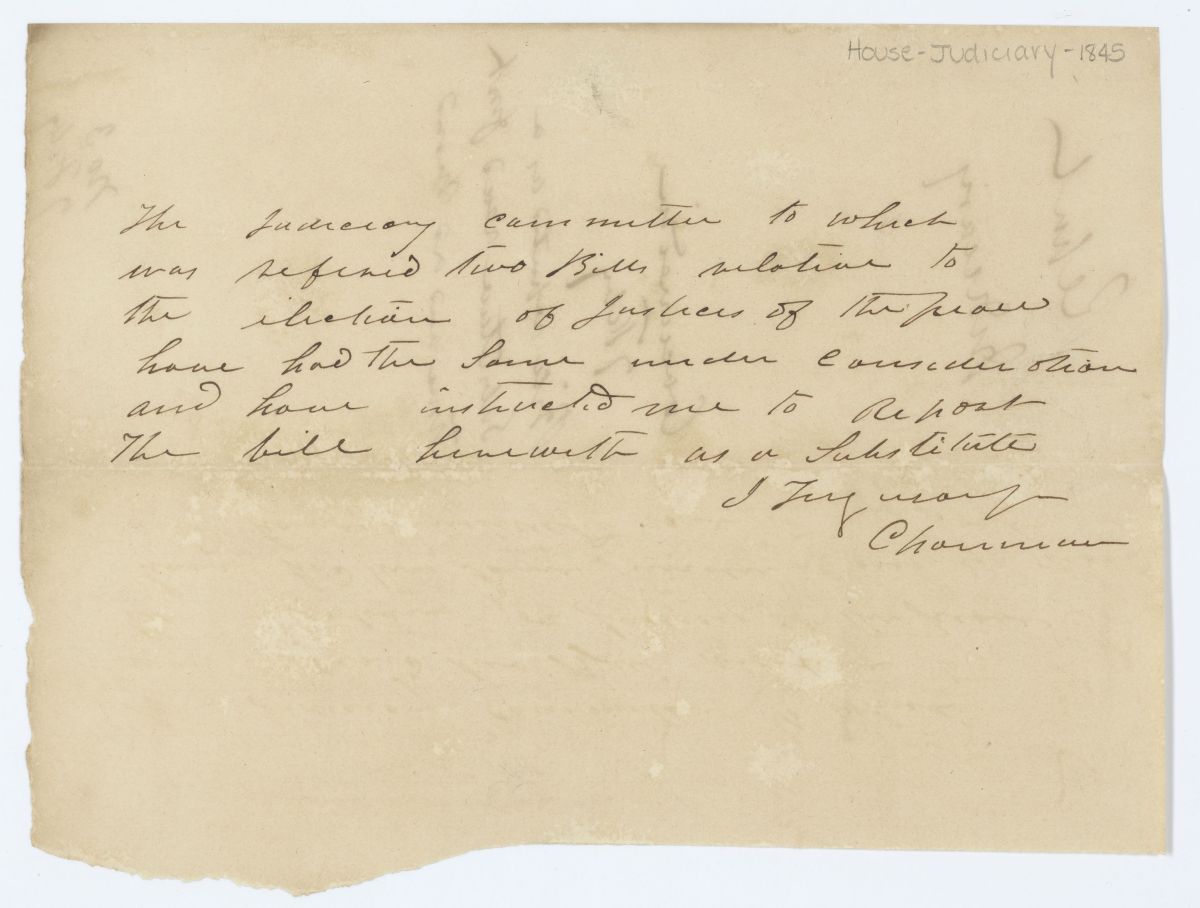 House - Judiciary - 1845
The Judiciary committee to which
was refered two Bills relative to
the election of Justices of the peace
have had the Same under Consideration
and have instructed me to Report
The bill herewith as a Substitute
J Ferguson
Chairman